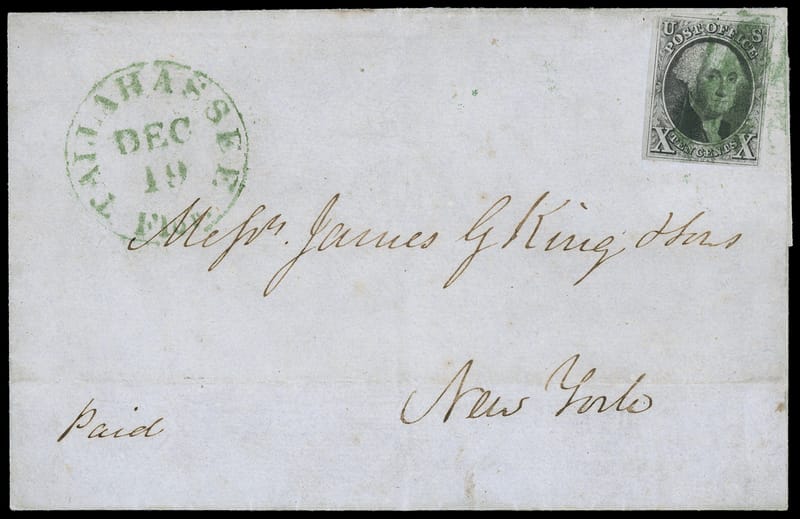 U S
POST OFFICE
X TEN CENTS X
TALLAHASSEE
DEC
19
Flor
Messrs. James G King, & Sons
New York
Paid